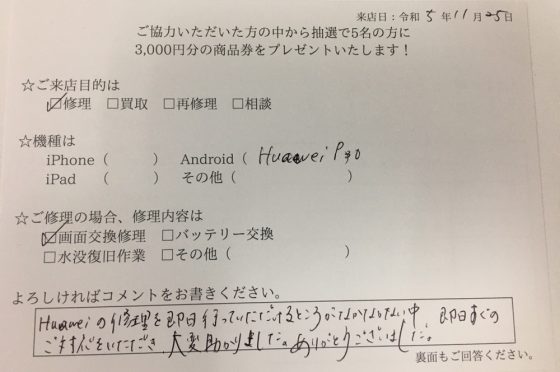 来店日：令和 5 年 11 月 25 日
ご協力いただいた方の中から抽選で5名の方に
3,000円分の商品券をプレゼントいたします！
☆ご来店目的は
☑修理 □買取 □再修理 □相談
☆機種は
iPhone（　　　） Android（ Huawei P30
iPad　（　　　） その他（　　　　　　　）
☆ご修理の場合、修理内容は
☑画面交換修理 □バッテリー交換
□水没復旧作業 □その他（　　　　　　　）
よろしければコメントをお書きください。
Huaweiの修理を即日行っていただけるところがなかなかない中、即日すぐの
ご対応をいただき、大変助かりました。ありがとうございました。
裏面もご回答ください。